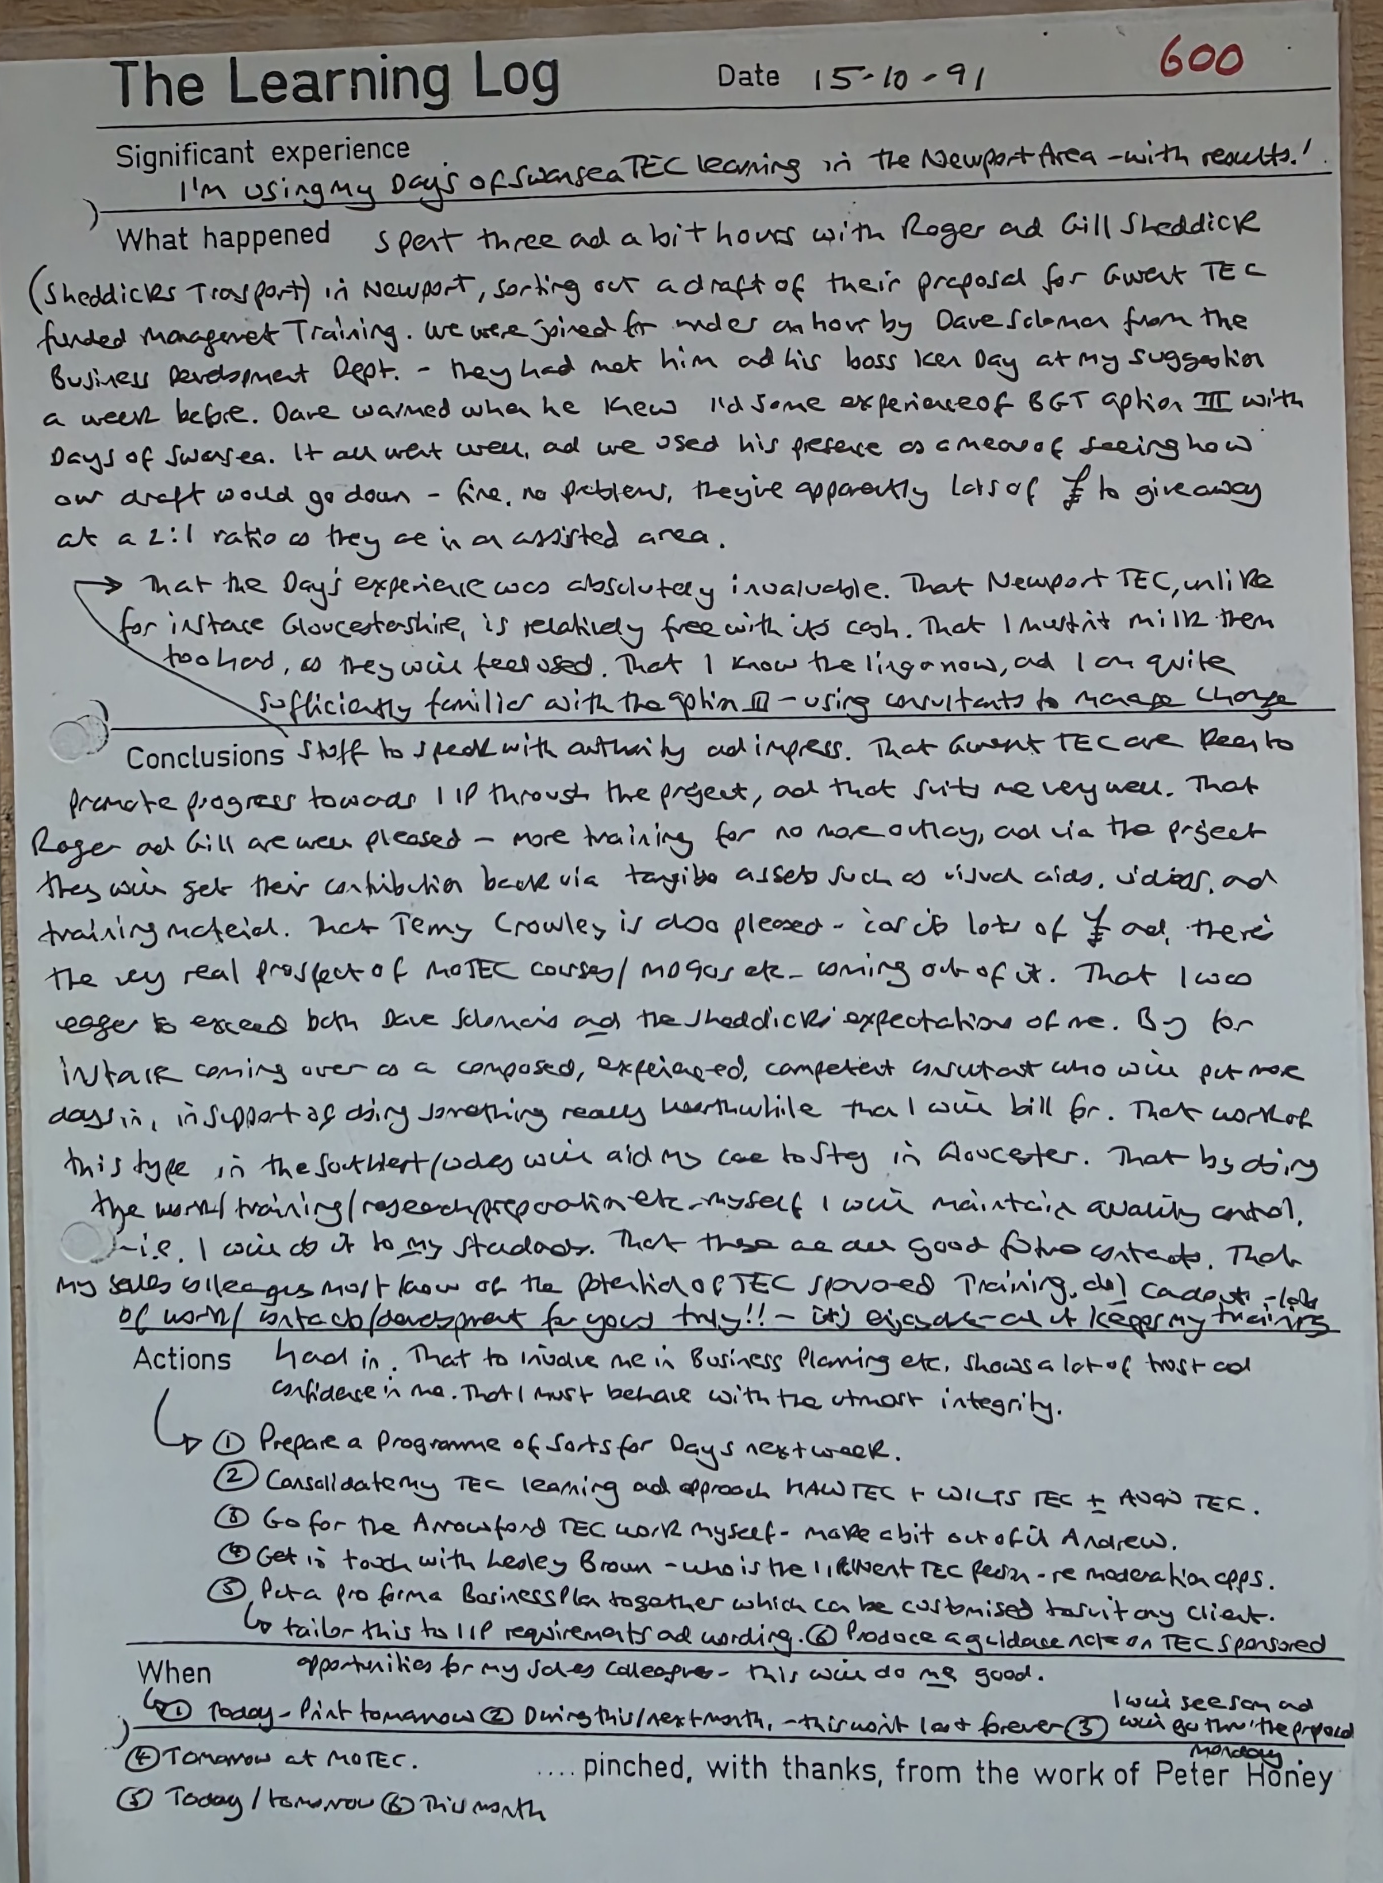 The Learning Log Date 15-10-91 600
Significant experience
I'm using my Days of Swansea TEC learning in the Newport Area - with results!
What happened Spent three ad a bit hours with Roger ad Gill Sheddick
(Sheddicks Trasport) in Newport, sorting out a draft of their proposal for Gwent TEC
funded Management Training. We were joined for under an hour by Dave Solomon from the
Business Development Dept. - they had met him ad his boss Ken Day at my suggestion
a week before. Dave warmed when he knew I'd some experience of BGT option III with
Days of Swansea. It all went well, ad we used his presence as a means of seeing how
our draft would go down - fine, no problems, they've apparently lots of £ to give away
at a 2:1 ratio as they are in an assisted area.
That the Day's experience was absolutely invaluable. That Newport TEC, unlike
for instance Gloucestershire, is relatively free with its cash. That I mustn't milk them
too hard, as they will feel used. That I know the lingo now, ad I am quite
sufficiently familiar with the option III - using consultants to manage change
Conclusions stuff to speak with authority ad impress. That Gwent TEC are keen to
promote progress towards IIP through the project, ad that suits me very well. That
Roger ad Gill are well pleased - more training for no more outlay, ad via the project
they will get their contribution back via tangible assets such as visual aids, videos, ad
training material. That Terry Crowley is also pleased - 'cos it's lots of £ ad, there's
the very real prospect of MOTEC courses/ mogas etc - coming out of it. That I was
eager to exceed both Dave Solomon's and the Sheddicks' expectations of me. By for
instance coming over as a composed, experienced, competent consultant who will put more
days in, in support of doing something really worthwhile than I will bill for. That work of
this type in the South West/Wales will aid my case to stay in Gloucester. That by doing
the work/training/research/preparation etc - myself I will maintain quality control,
- i.e. I will do it to my standards. That these are all good future contacts. That
my sales colleagues must know of the potential of TEC sponsored Training, do! - lots
of work/contacts/development for yours truly!! - it's enjoyable - ad it keeps my training
Actions hand in. That to involve me in Business Planning etc. shows a lot of trust ad
confidence in me. That I must behave with the utmost integrity.
① Prepare a Programme of sorts for Days next week.
② Consolidate my TEC learning ad approach HAWTEC + WILTS TEC ± AVON TEC.
③ Go for the Arrowford TEC work myself - make a bit out of it Andrew.
④ Get in touch with Lesley Brown - who is the Gwent TEC person - re moderation opps.
⑤ Put a pro forma Business Plan together which can be customised to suit any client.
tailor this to IIP requirements ad wording. ⑥ Produce a guidance note on TEC sponsored
When opportunities for my sales colleagues - this will do me good.
① Today - Print tomorrow ② During this/next month, - this won't last forever ③ I will see Som ad
will go thro' the proposal
Monday.
④ Tomorrow at MOTEC.
.... pinched, with thanks, from the work of Peter Honey
⑤ Today / tomorrow ⑥ This month